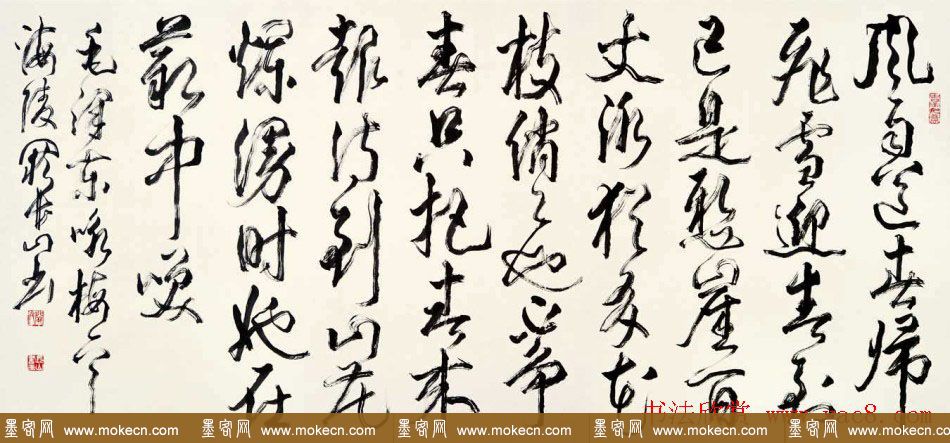 風雨送春歸
飛雪迎春到
已是懸崖百
丈冰猶有花
枝俏俏也不爭
春只把春來
報待到山花
爛漫時她在
叢中笑
毛澤東咏梅
海陵 山书
书法欣赏
墨客网 www.mokecn.com 墨客网 www.mokecn.com 墨客网 www.mokecn.com 墨客网 www.mokecn.com 墨客网 www.mokecn.com